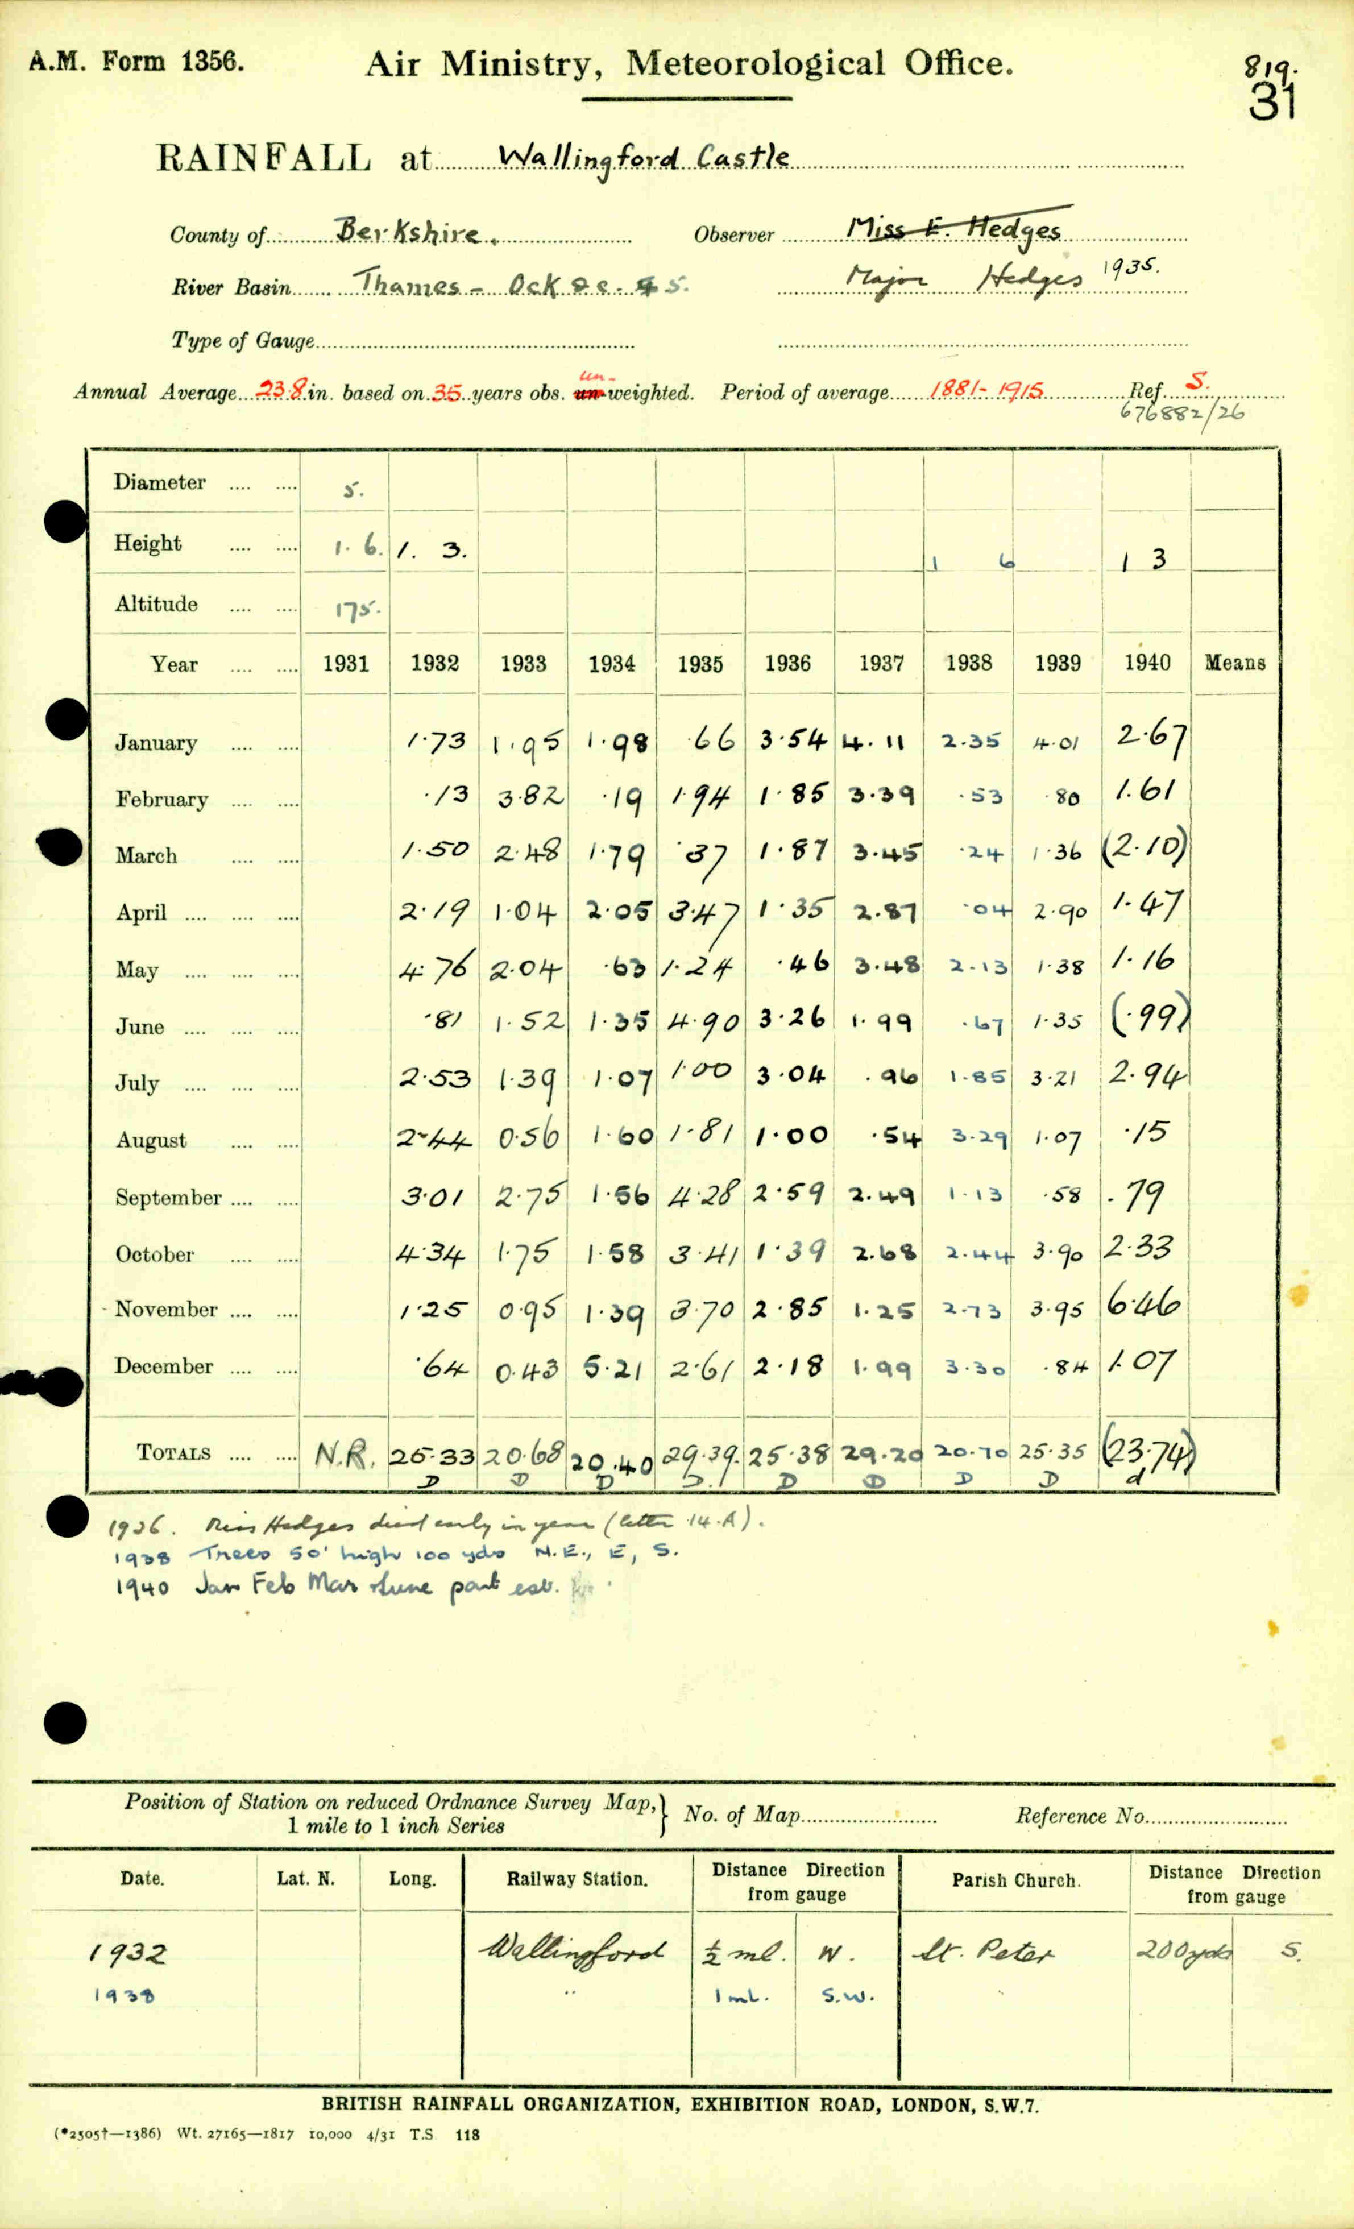 A.M. Form 1356.
Air Ministry, Meteorological Office.
819.
31
RAINFALL at Wallingford Castle
County of Berkshire. Observer Miss E. Hedges
River Basin Thames - Ock &c. 5. Major Hedges 1935.
Type of Gauge
Annual Average 23.8 in. based on 35 years obs. un-weighted. Period of average 1881-1915 Ref. S.
676882/26
Diameter .... .... 5.
Height .... .... 1. 6. 1. 3. 1 6 1 3
Altitude .... .... 175.
Year .... .... 1931 1932 1933 1934 1935 1936 1937 1938 1939 1940 Means
January .... .... 1.73 1.95 1.98 .66 3.54 4.11 2.35 4.01 2.67
February .... .... .13 3.82 .19 1.94 1.85 3.39 .53 .80 1.61
March .... .... 1.50 2.48 1.79 .37 1.87 3.45 .24 1.36 (2.10)
April .... .... .... 2.19 1.04 2.05 3.47 1.35 2.87 .04 2.90 1.47
May .... .... .... 4.76 2.04 .63 1.24 .46 3.48 2.13 1.38 1.16
June .... .... .... .81 1.52 1.35 4.90 3.26 1.99 .67 1.35 (.99)
July .... .... .... 2.53 1.39 1.07 1.00 3.04 .96 1.85 3.21 2.94
August .... .... 2.44 0.56 1.60 1.81 1.00 .54 3.29 1.07 .15
September .... .... 3.01 2.75 1.56 4.28 2.59 2.49 1.13 .58 .79
October .... .... 4.34 1.75 1.58 3.41 1.39 2.68 2.44 3.90 2.33
November .... .... 1.25 0.95 1.39 3.70 2.85 1.25 2.73 3.95 6.46
December .... .... .64 0.43 5.21 2.61 2.18 1.99 3.30 .84 1.07
TOTALS .... .... N.R. 25.33 20.68 20.40 29.39. 25.38 29.20 20.70 25.35 (23.74)
D D D D. D D D D d
1936. Miss Hedges died early in year (letter 14.A).
1938 Trees 50' high 100 yds N.E., E, S.
1940 Jan Feb Mar June part est.
Position of Station on reduced Ordnance Survey Map, } No. of Map Reference No.
1 mile to 1 inch Series
Date. Lat. N. Long. Railway Station. Distance Direction from gauge Parish Church. Distance Direction from gauge
1932 Wallingford ½ ml. W. St. Peter 200 yds S.
1938 " 1 ml. S.W.
BRITISH RAINFALL ORGANIZATION, EXHIBITION ROAD, LONDON, S.W.7.
(*2505†—1386) Wt. 27165—1817 10,000 4/31 T.S 118